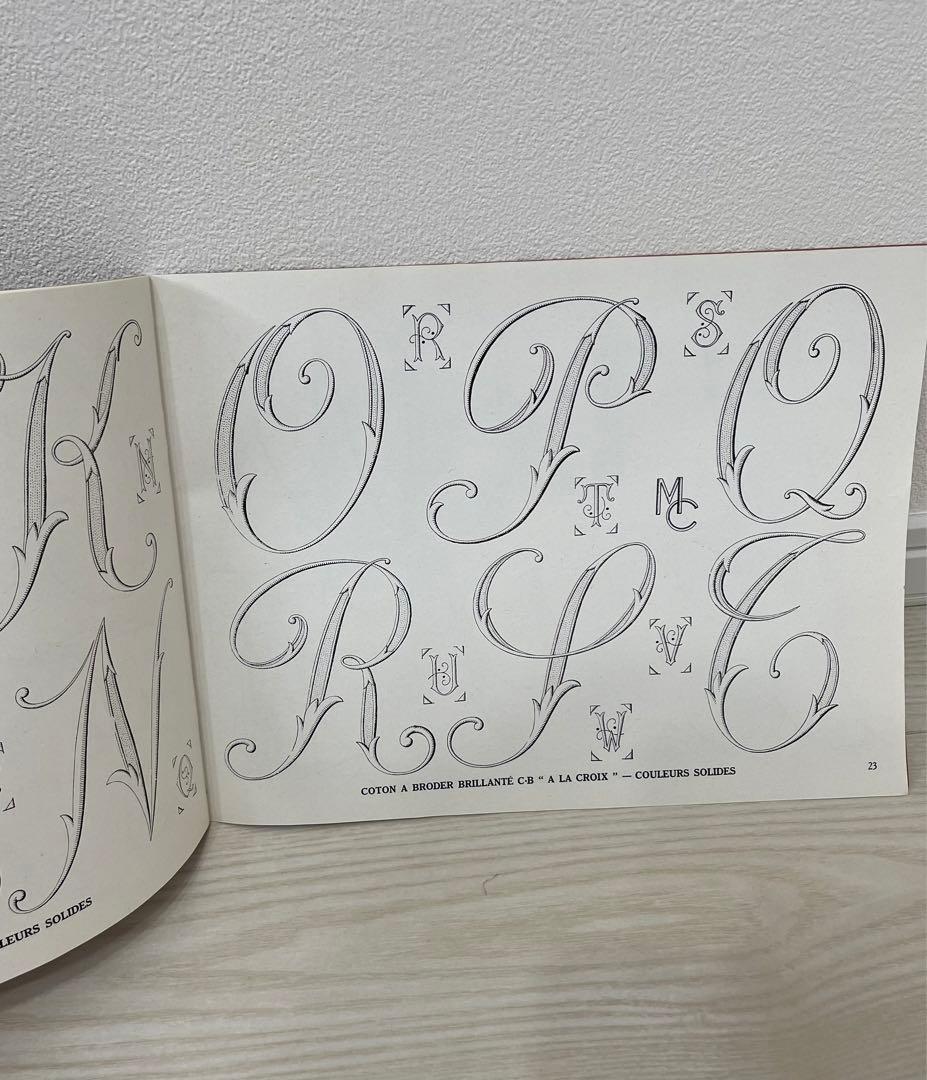 K
I
N
LEURS SOLIDES
O R P S Q
T MC
R U S V T
W
COTON A BRODER BRILLANTÉ C·B “ A LA CROIX ” — COULEURS SOLIDES
23